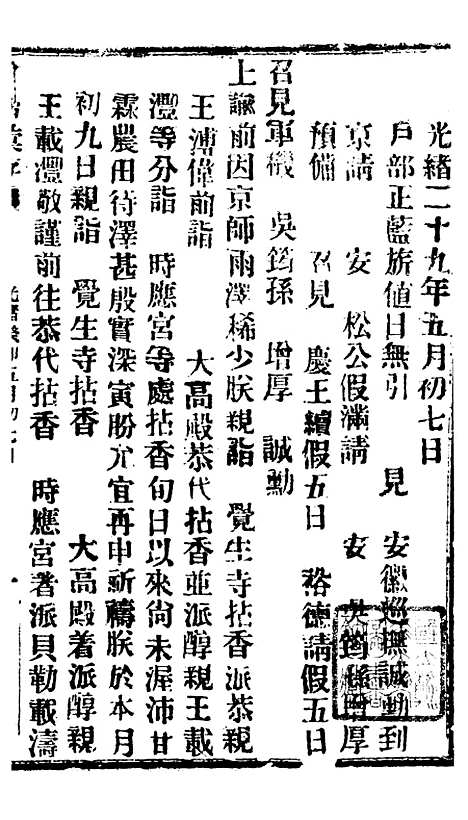 光緒二十九年五月初七日
戶部正藍旗值日無引　見　安徽巡撫誠勳到
京請　安　松公假滿請　安　吳筠孫增厚
預備　召見　慶王續假五日　裕德請假五日
召見軍機　吳筠孫　增厚　誠勳
上諭前因京師雨澤稀少朕親詣　覺生寺拈香派恭親
王溥偉前詣　大高殿恭代拈香並派醇親王載
灃等分詣　時應宮等處拈香旬日以來尚未渥沛甘
霖農田待澤甚殷實深寅盼允宜再申祈禱朕於本月
初九日親詣　覺生寺拈香　大高殿着派醇親
王載灃敬謹前往恭代拈香　時應宮著派貝勒載濤
光緒癸卯五月初七日